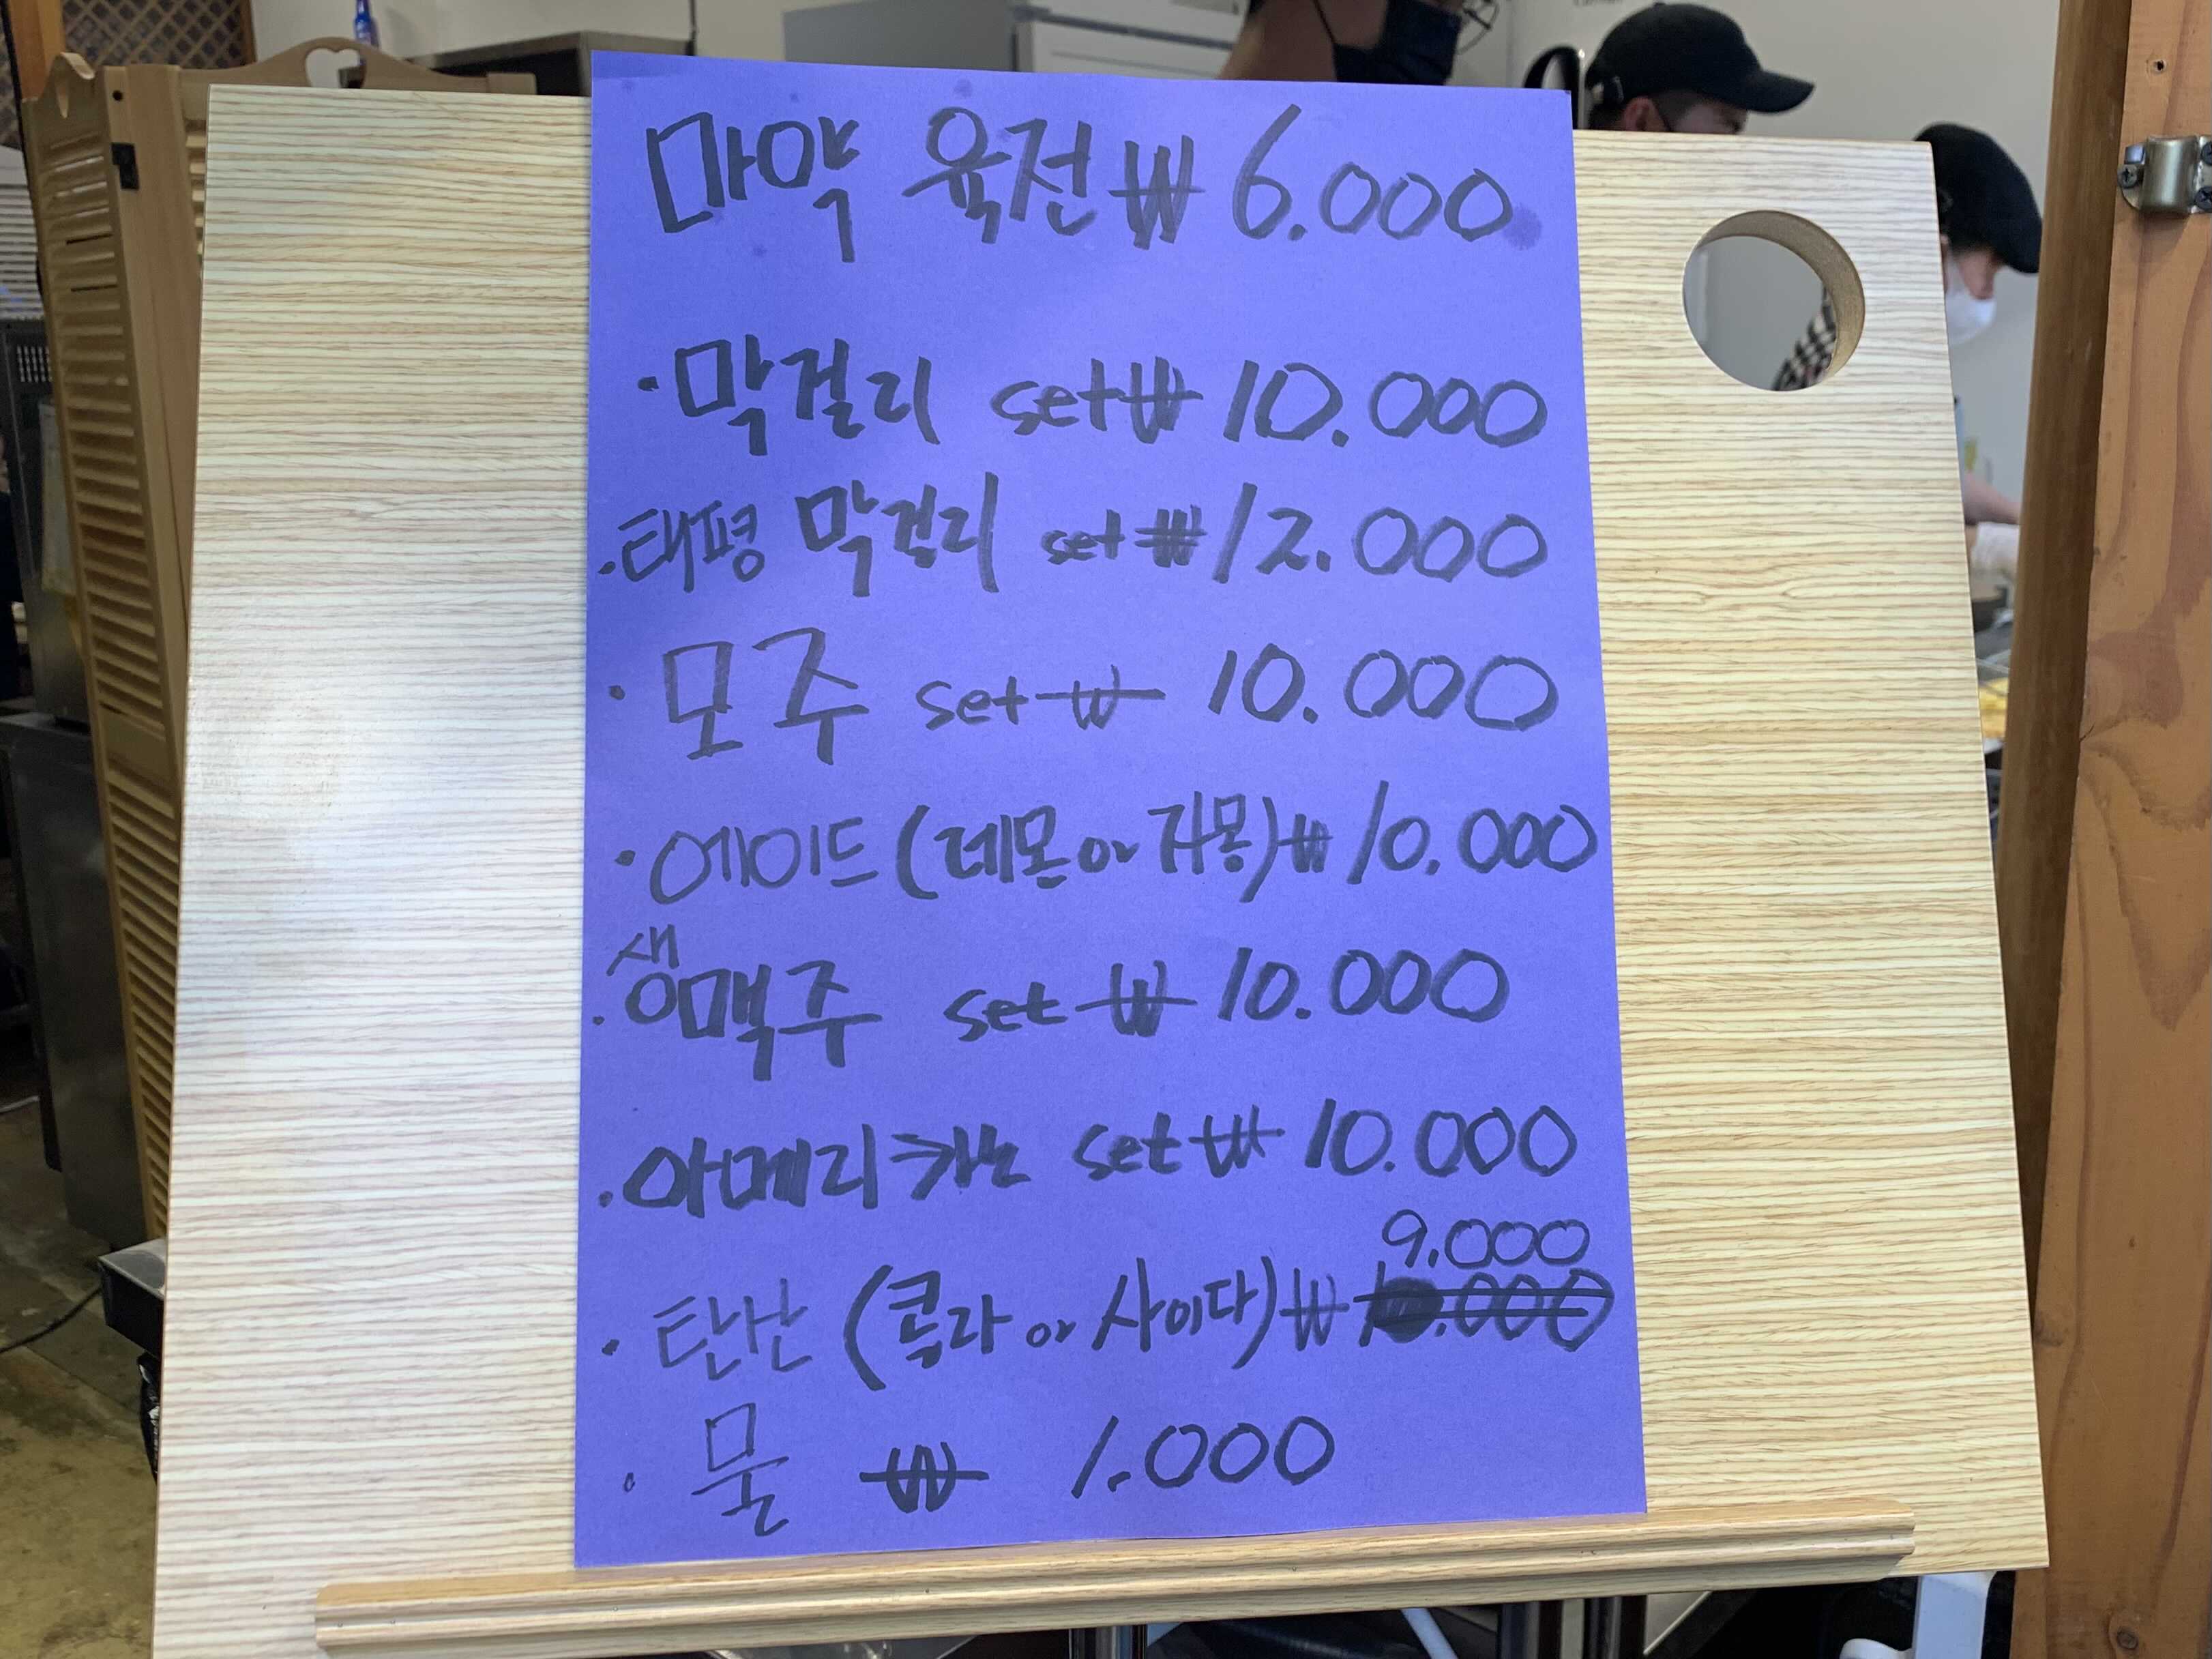 마약 육전 ₩ 6.000
· 막걸리 set ₩ 10.000
· 태평 막걸리 set ₩ 12.000
· 모주 set ₩ 10.000
· 에이드 (레몬 or 자몽) ₩ 10.000
· 생맥주 set ₩ 10.000
· 아메리카노 set ₩ 10.000
9.000
· 탄산 (콜라 or 사이다) ₩ 10.000
· 물 ₩ 1.000